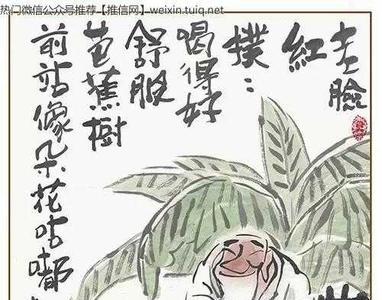 热门微信公众号推荐【推信网】weixin.tuiq.net
老臉
紅
撲：
喝得好
舒服
芭蕉樹
前站像朵花咕嘟